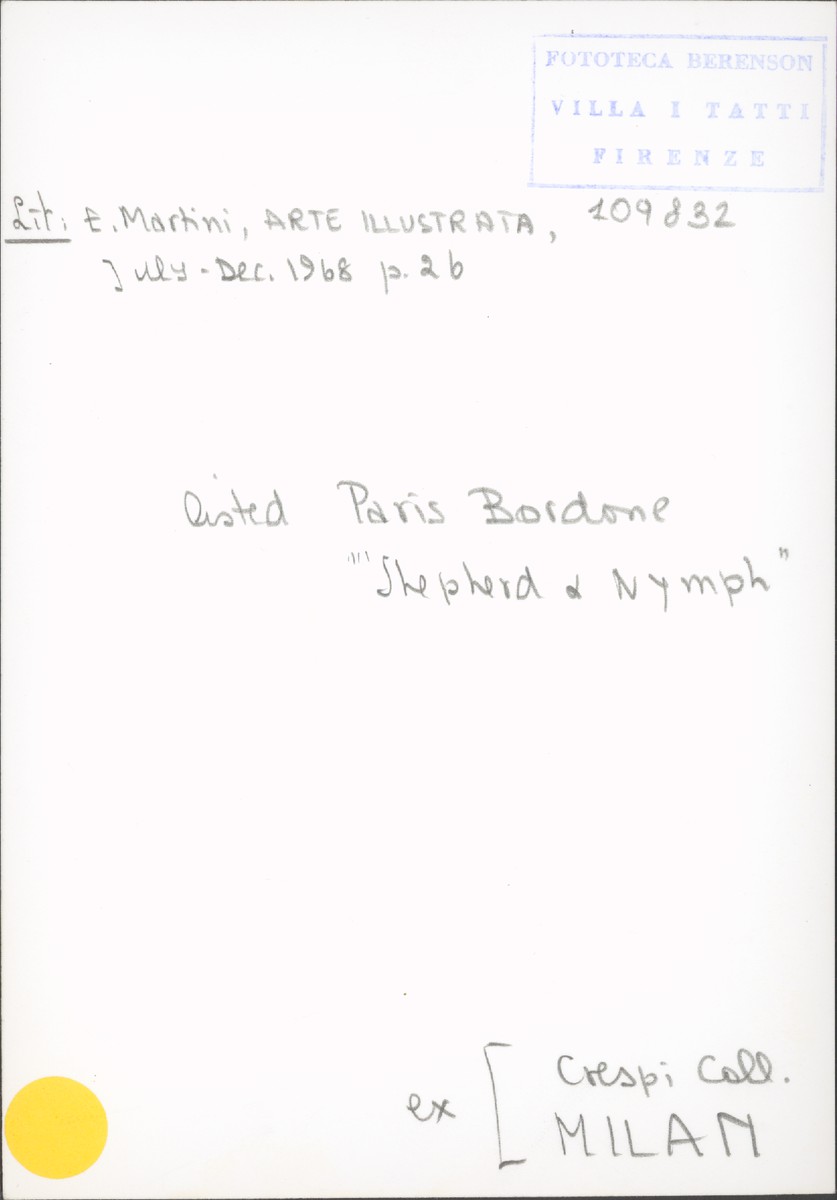 FOTOTECA BERENSON
VILLA I TATTI
FIRENZE
109832
Lit: E. Martini, ARTE ILLUSTRATA,
July - Dec. 1968 p. 26
listed Paris Bordone
"Shepherd & Nymph"
ex [ Crespi Coll.
MILAN